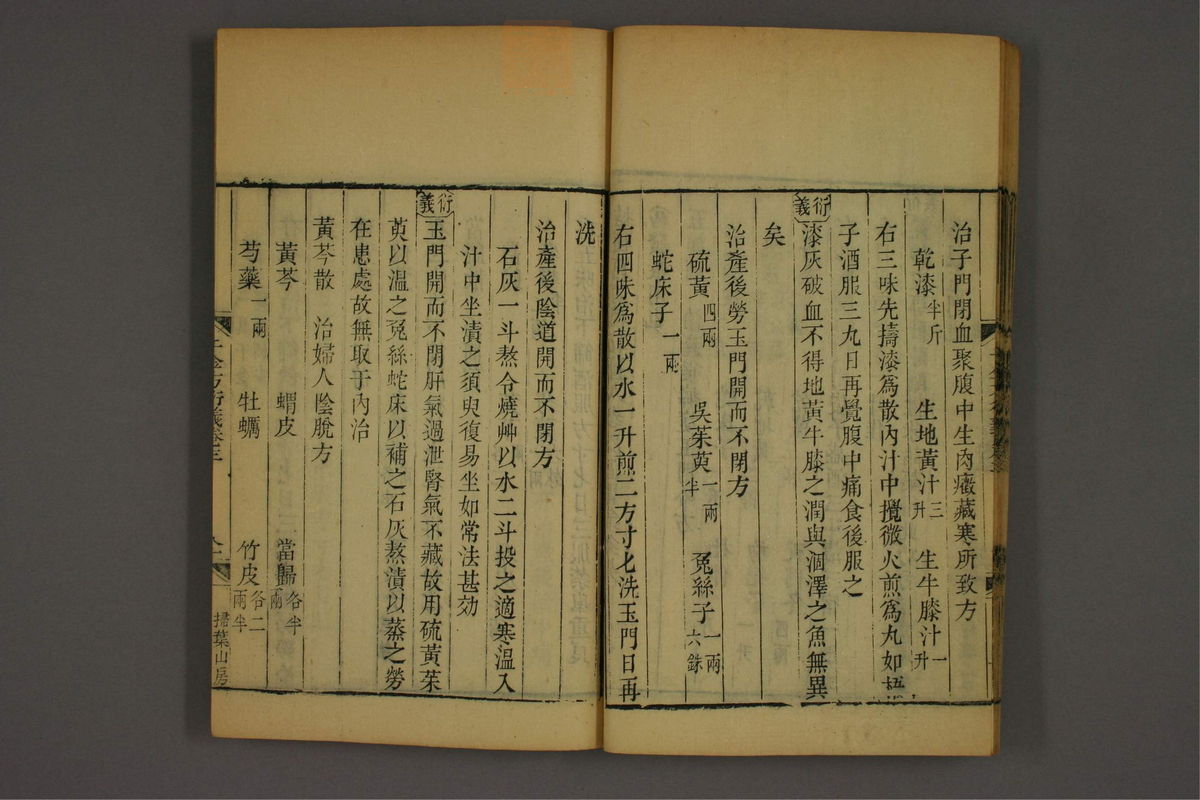 治子門閉血聚腹中生肉癥藏寒所致方
乾漆半斤 生地黃汁三升 生牛膝汁一升
右三味先擣漆爲散內汁中攪微火煎爲丸如梧
子酒服三丸日再覺腹中痛食後服之
衍義 漆灰破血不得地黃牛膝之潤與涸澤之魚無異
矣
治產後勞玉門開而不閉方
硫黃四兩 吳茱萸一兩半 兔絲子一兩六銖
蛇床子一兩
右四味爲散以水一升煎二方寸匕洗玉門日再
洗
治產後陰道開而不閉方
石灰一斗熬令燒艸以水二斗投之適寒溫入
汁中坐漬之須臾復易坐如常法甚効
衍義 玉門開而不閉肝氣過泄腎氣不藏故用硫黃茱
萸以溫之兔絲蛇床以補之石灰熬漬以蒸之勞
在患處故無取于內治
黃芩散 治婦人陰脫方
黃芩 蝟皮 當歸各半兩
芍藥一兩 牡蠣 竹皮各二兩半
千金方衍義卷三
掃葉山房